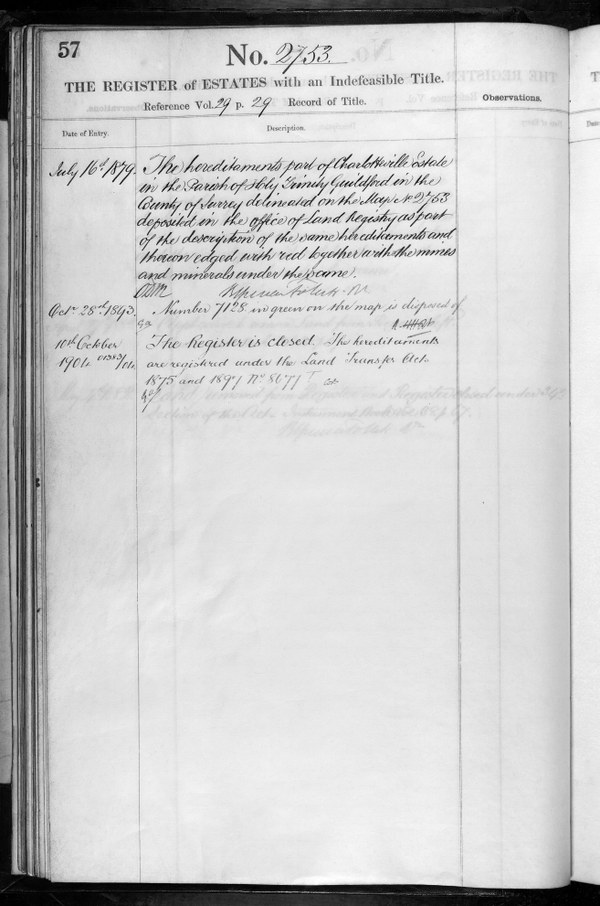 57
No. 2753.
THE REGISTER of ESTATES with an Indefeasible Title.
Reference Vol. 29 p. 29 Record of Title.
Observations.
Date of Entry.
Description.
July 16th 1879.
The hereditaments part of Charlottville Estate
in the Parish of Holy Trinity Guildford in the
County of Surrey delineated on the Map No 2753
deposited in the office of Land Registry as part
of the description of the same hereditaments and
thereon edged with red together with the mines
and minerals under the same.
Octr 28th 1893.
Number 7128 in green on the map is disposed of
10th October
1904
The Register is closed. The hereditaments
are registered under the Land Transfer Acts
1875 and 1897 No 8677